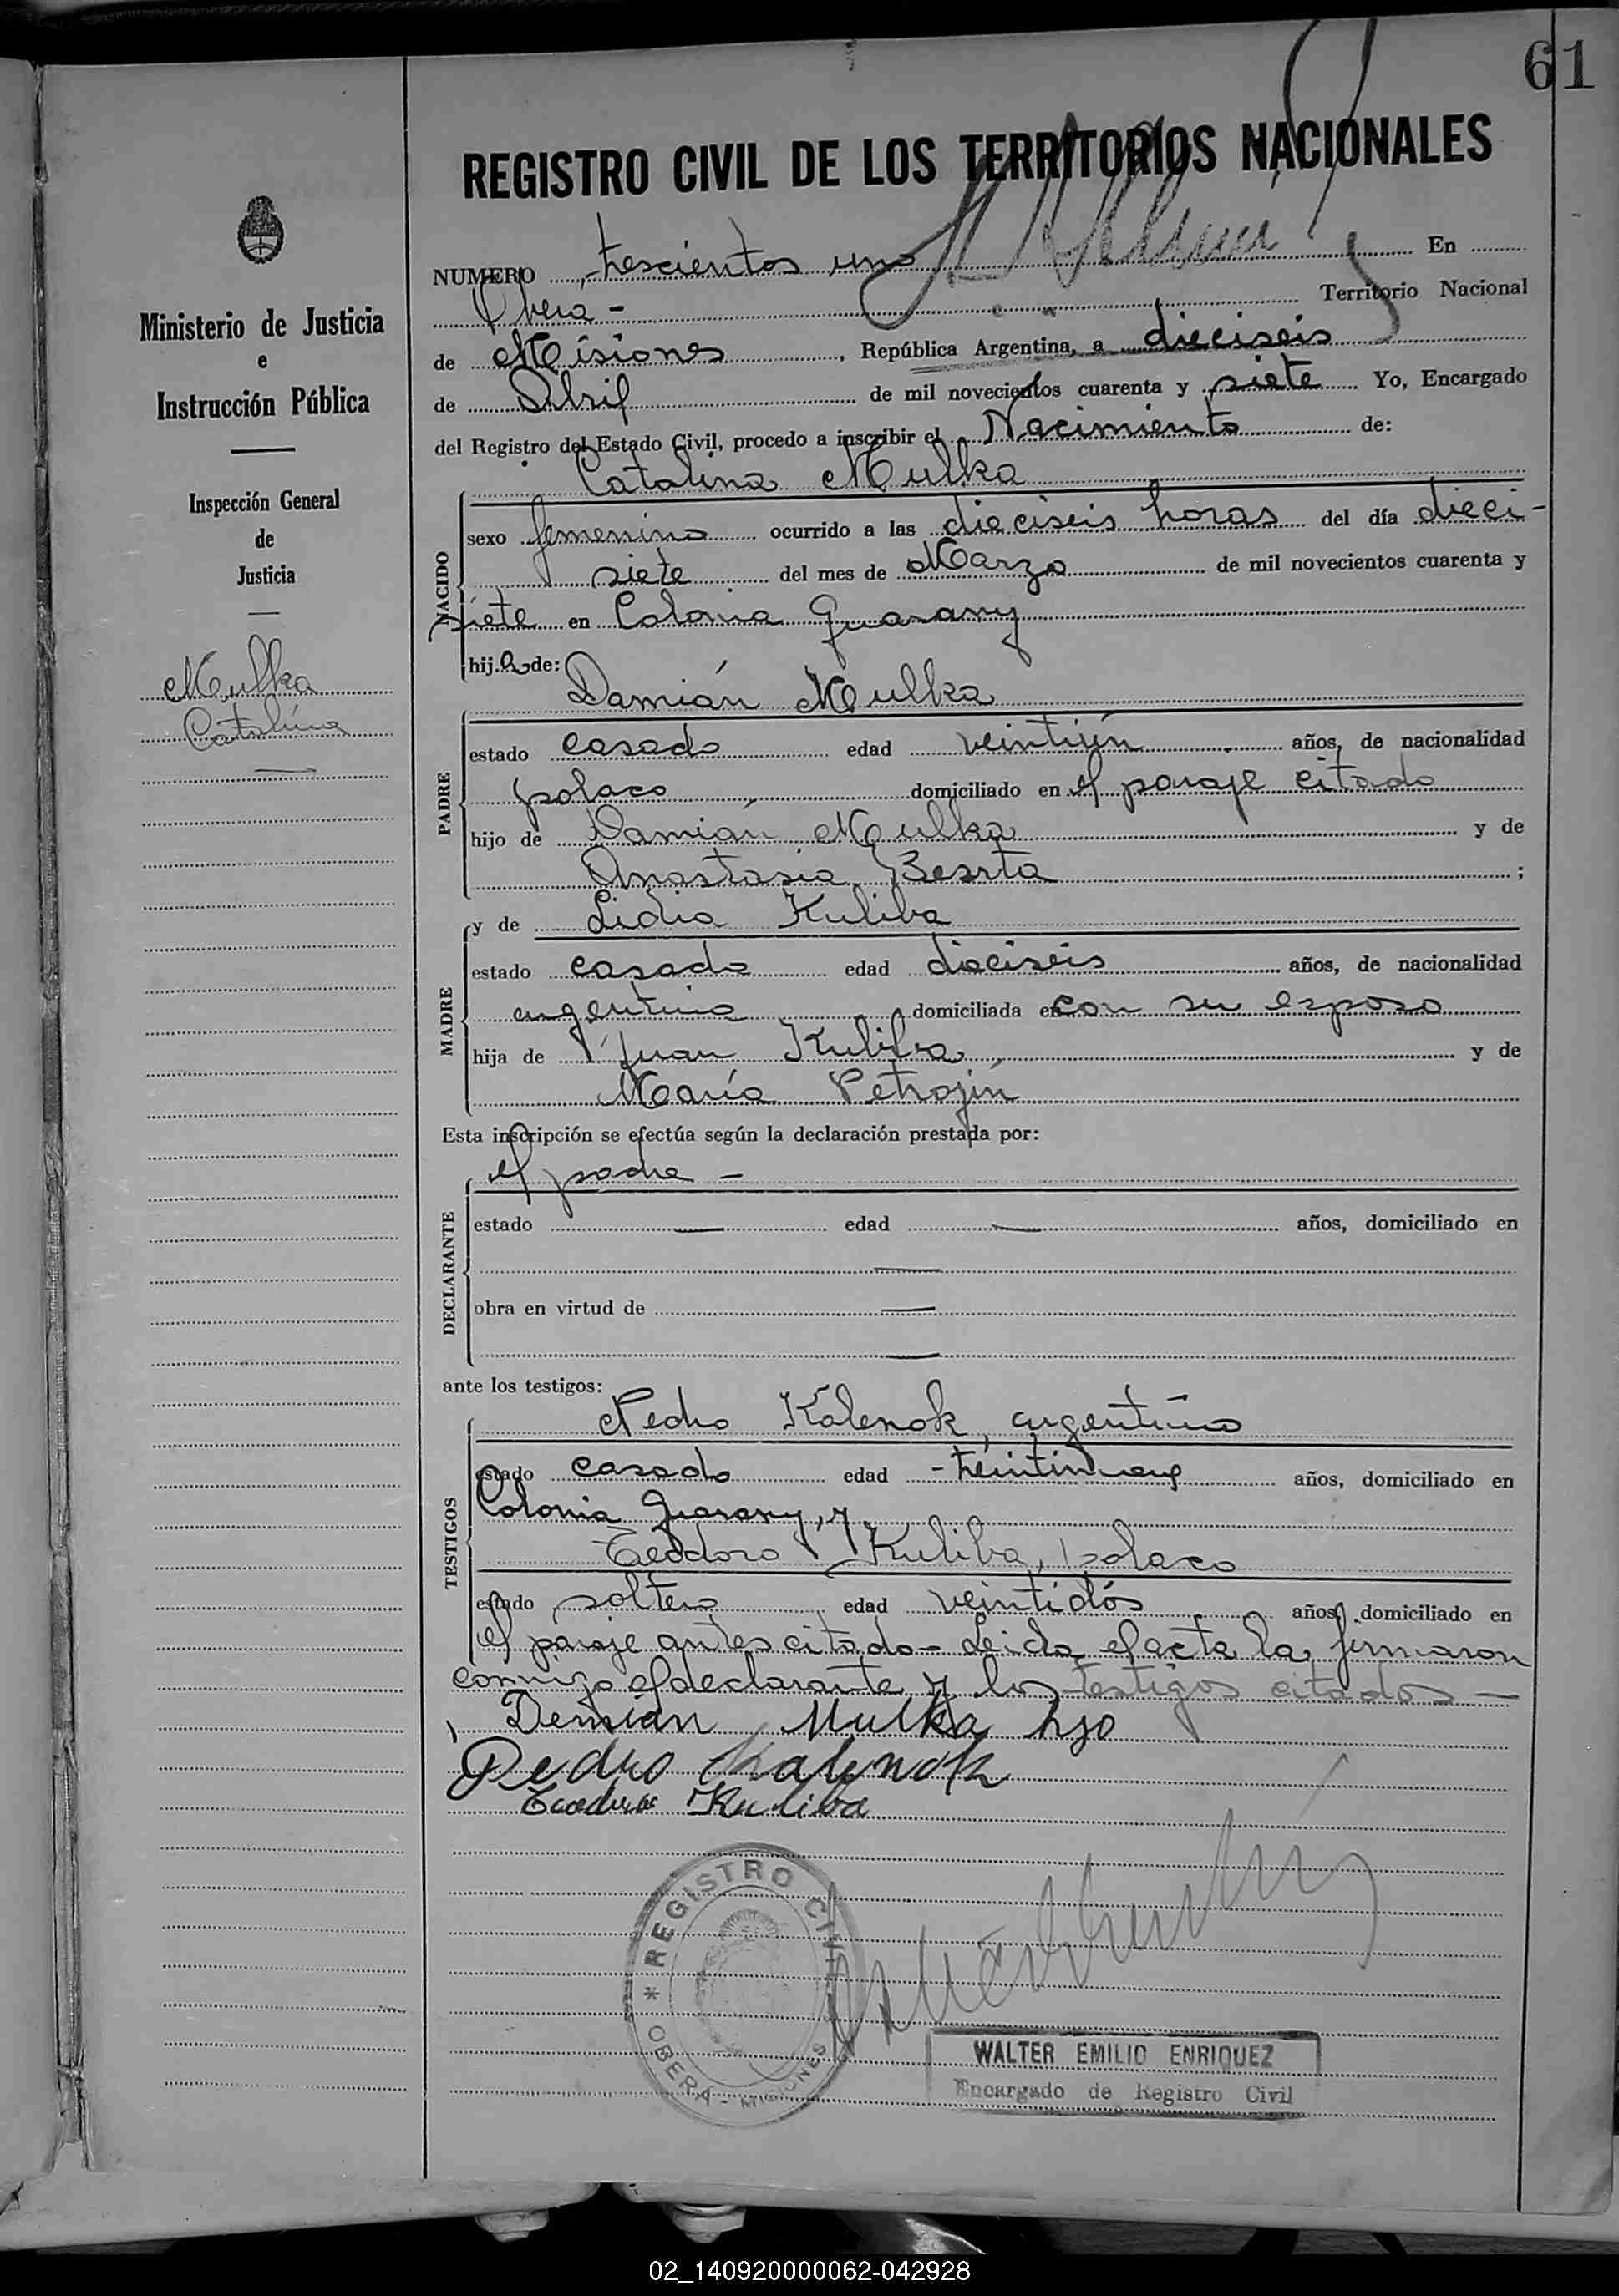 61
REGISTRO CIVIL DE LOS TERRITORIOS NACIONALES
NUMERO trescientos uno En
Oberá -
Territorio Nacional
de Misiones, República Argentina, a dieciseis
de Abril de mil novecientos cuarenta y siete Yo, Encargado
del Registro del Estado Civil, procedo a inscribir el Nacimiento de:
Catalina Mulka
NACIDO
sexo femenino ocurrido a las dieciseis horas del día dieci-
siete del mes de Marzo de mil novecientos cuarenta y
siete en Colonia Guarany
hija de:
Damián Mulka
PADRE
estado casado edad veintiún años, de nacionalidad
polaco domiciliado en el paraje citado
hijo de Damián Mulka y de
Anastasia ;
y de Lidia Kuliba
MADRE
estado casada edad dieciseis años, de nacionalidad
argentina domiciliada en con su esposo
hija de Juan Kuliba y de
María Petrojin
Esta inscripción se efectúa según la declaración prestada por:
el padre -
DECLARANTE
estado — edad — años, domiciliado en
—
obra en virtud de —
—
ante los testigos:
TESTIGOS
Pedro Kalenok, argentino
estado casado edad años, domiciliado en
Colonia Guarany, y
Teodoro Kuliba, polaco
estado soltero edad veintidós años, domiciliado en
el paraje antes citado - Leida el acta la firmaron
conmigo el declarante y los testigos citados -
Demián Mulka hjo
Pedro Kalenok
Kuliba
REGISTRO CIVIL
* OBERA - MISIONES
WALTER EMILIO ENRIQUEZ
Encargado de Registro Civil
Ministerio de Justicia
e
Instrucción Pública
Inspección General
de
Justicia
Mulka
Catalina
02_140920000062-042928